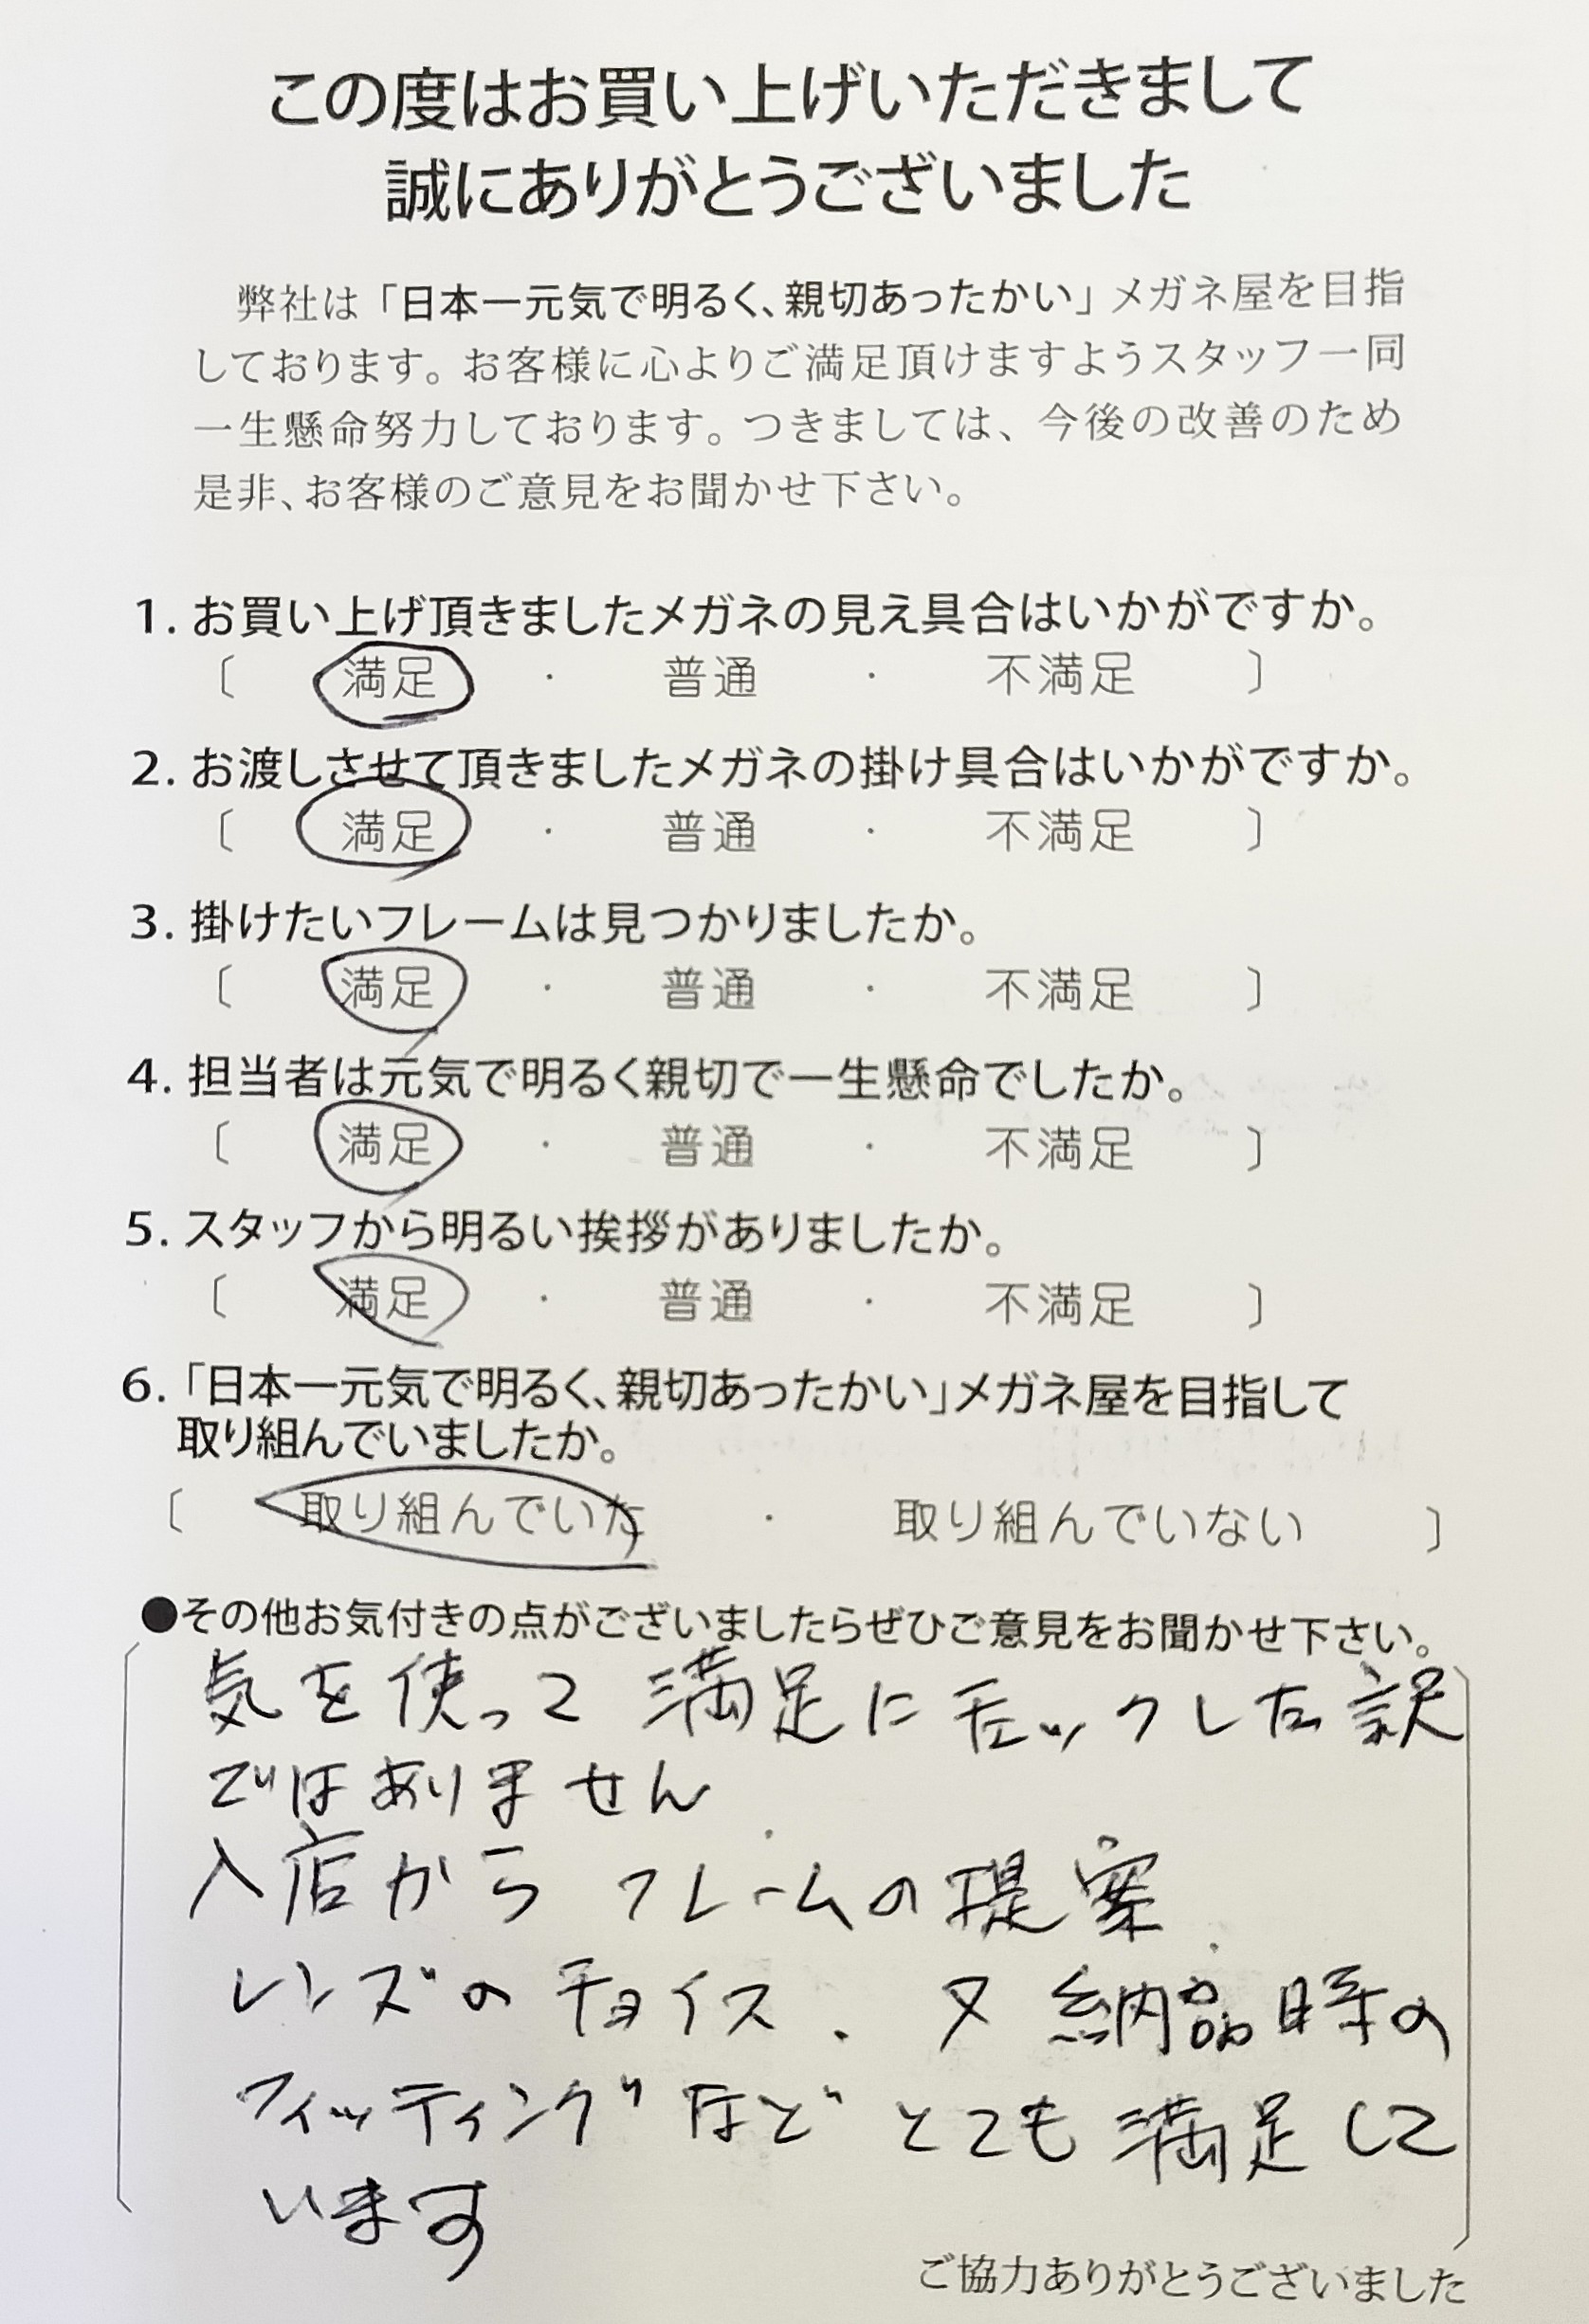 この度はお買い上げいただきまして
誠にありがとうございました
弊社は「日本一元気で明るく、親切あったかい」メガネ屋を目指
しております。お客様に心よりご満足頂けますようスタッフ一同
一生懸命努力しております。つきましては、今後の改善のため
是非、お客様のご意見をお聞かせ下さい。
1. お買い上げ頂きましたメガネの見え具合はいかがですか。
〔 満足 ・ 普通 ・ 不満足 〕
2. お渡しさせて頂きましたメガネの掛け具合はいかがですか。
〔 満足 ・ 普通 ・ 不満足 〕
3. 掛けたいフレームは見つかりましたか。
〔 満足 ・ 普通 ・ 不満足 〕
4. 担当者は元気で明るく親切で一生懸命でしたか。
〔 満足 ・ 普通 ・ 不満足 〕
5. スタッフから明るい挨拶がありましたか。
〔 満足 ・ 普通 ・ 不満足 〕
6.「日本一元気で明るく、親切あったかい」メガネ屋を目指して
取り組んでいましたか。
〔 取り組んでいた ・ 取り組んでいない 〕
●その他お気付きの点がございましたらぜひご意見をお聞かせ下さい。
気を使って 満足にチェックした訳
ではありません
入店から フレームの提案
レンズのチョイス. 又 納品時の
フィッティングなど とても満足して
います
ご協力ありがとうございました